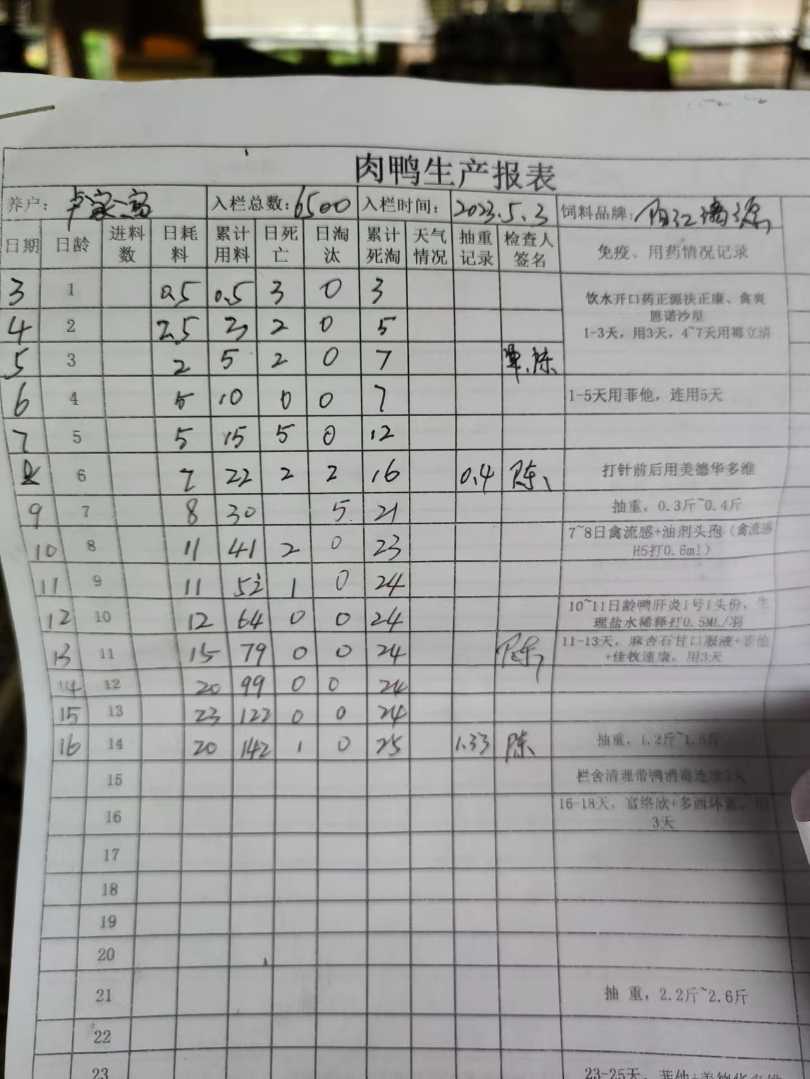 肉鸭生产报表
养户： 入栏总数：6500 入栏时间：2023.5.3 饲料品牌：
日期 日龄 进料数 日耗料 累计用料 日死亡 日淘汰 累计死淘 天气情况 抽重记录 检查人签名 免疫、用药情况记录
3 1 0.5 0.5 3 0 3 饮水开口药正源扶正康、禽爽
恩诺沙星
4 2 2.5 3 2 0 5 1-3天，用3天，4~7天用霉立清
5 3 2 5 2 0 7
6 4 5 10 0 0 7 1-5天用菲他，连用5天
7 5 5 15 5 0 12
8 6 7 22 2 2 16 0.4 陈 打针前后用美德华多维
9 7 8 30 5 21 抽重，0.3斤~0.4斤
10 8 11 41 2 0 23 7~8日禽流感+油剂头孢（禽流感
H5打0.6ml）
11 9 11 52 1 0 24
12 10 12 64 0 0 24 10~11日龄鸭肝炎1号1头份，生
理盐水稀释打0.5ML/羽
13 11 15 79 0 0 24 陈 11-13天，麻杏石甘口服液+
，用3天
14 12 20 99 0 0 24
15 13 23 122 0 0 24
16 14 20 142 1 0 25 1.33 陈 抽重，1.2斤~
15 栏舍清理带鸭消毒
16 16-18天，
3天
17
18
19
20
21 抽 重，2.2斤~2.6斤
22
23 23-25天，